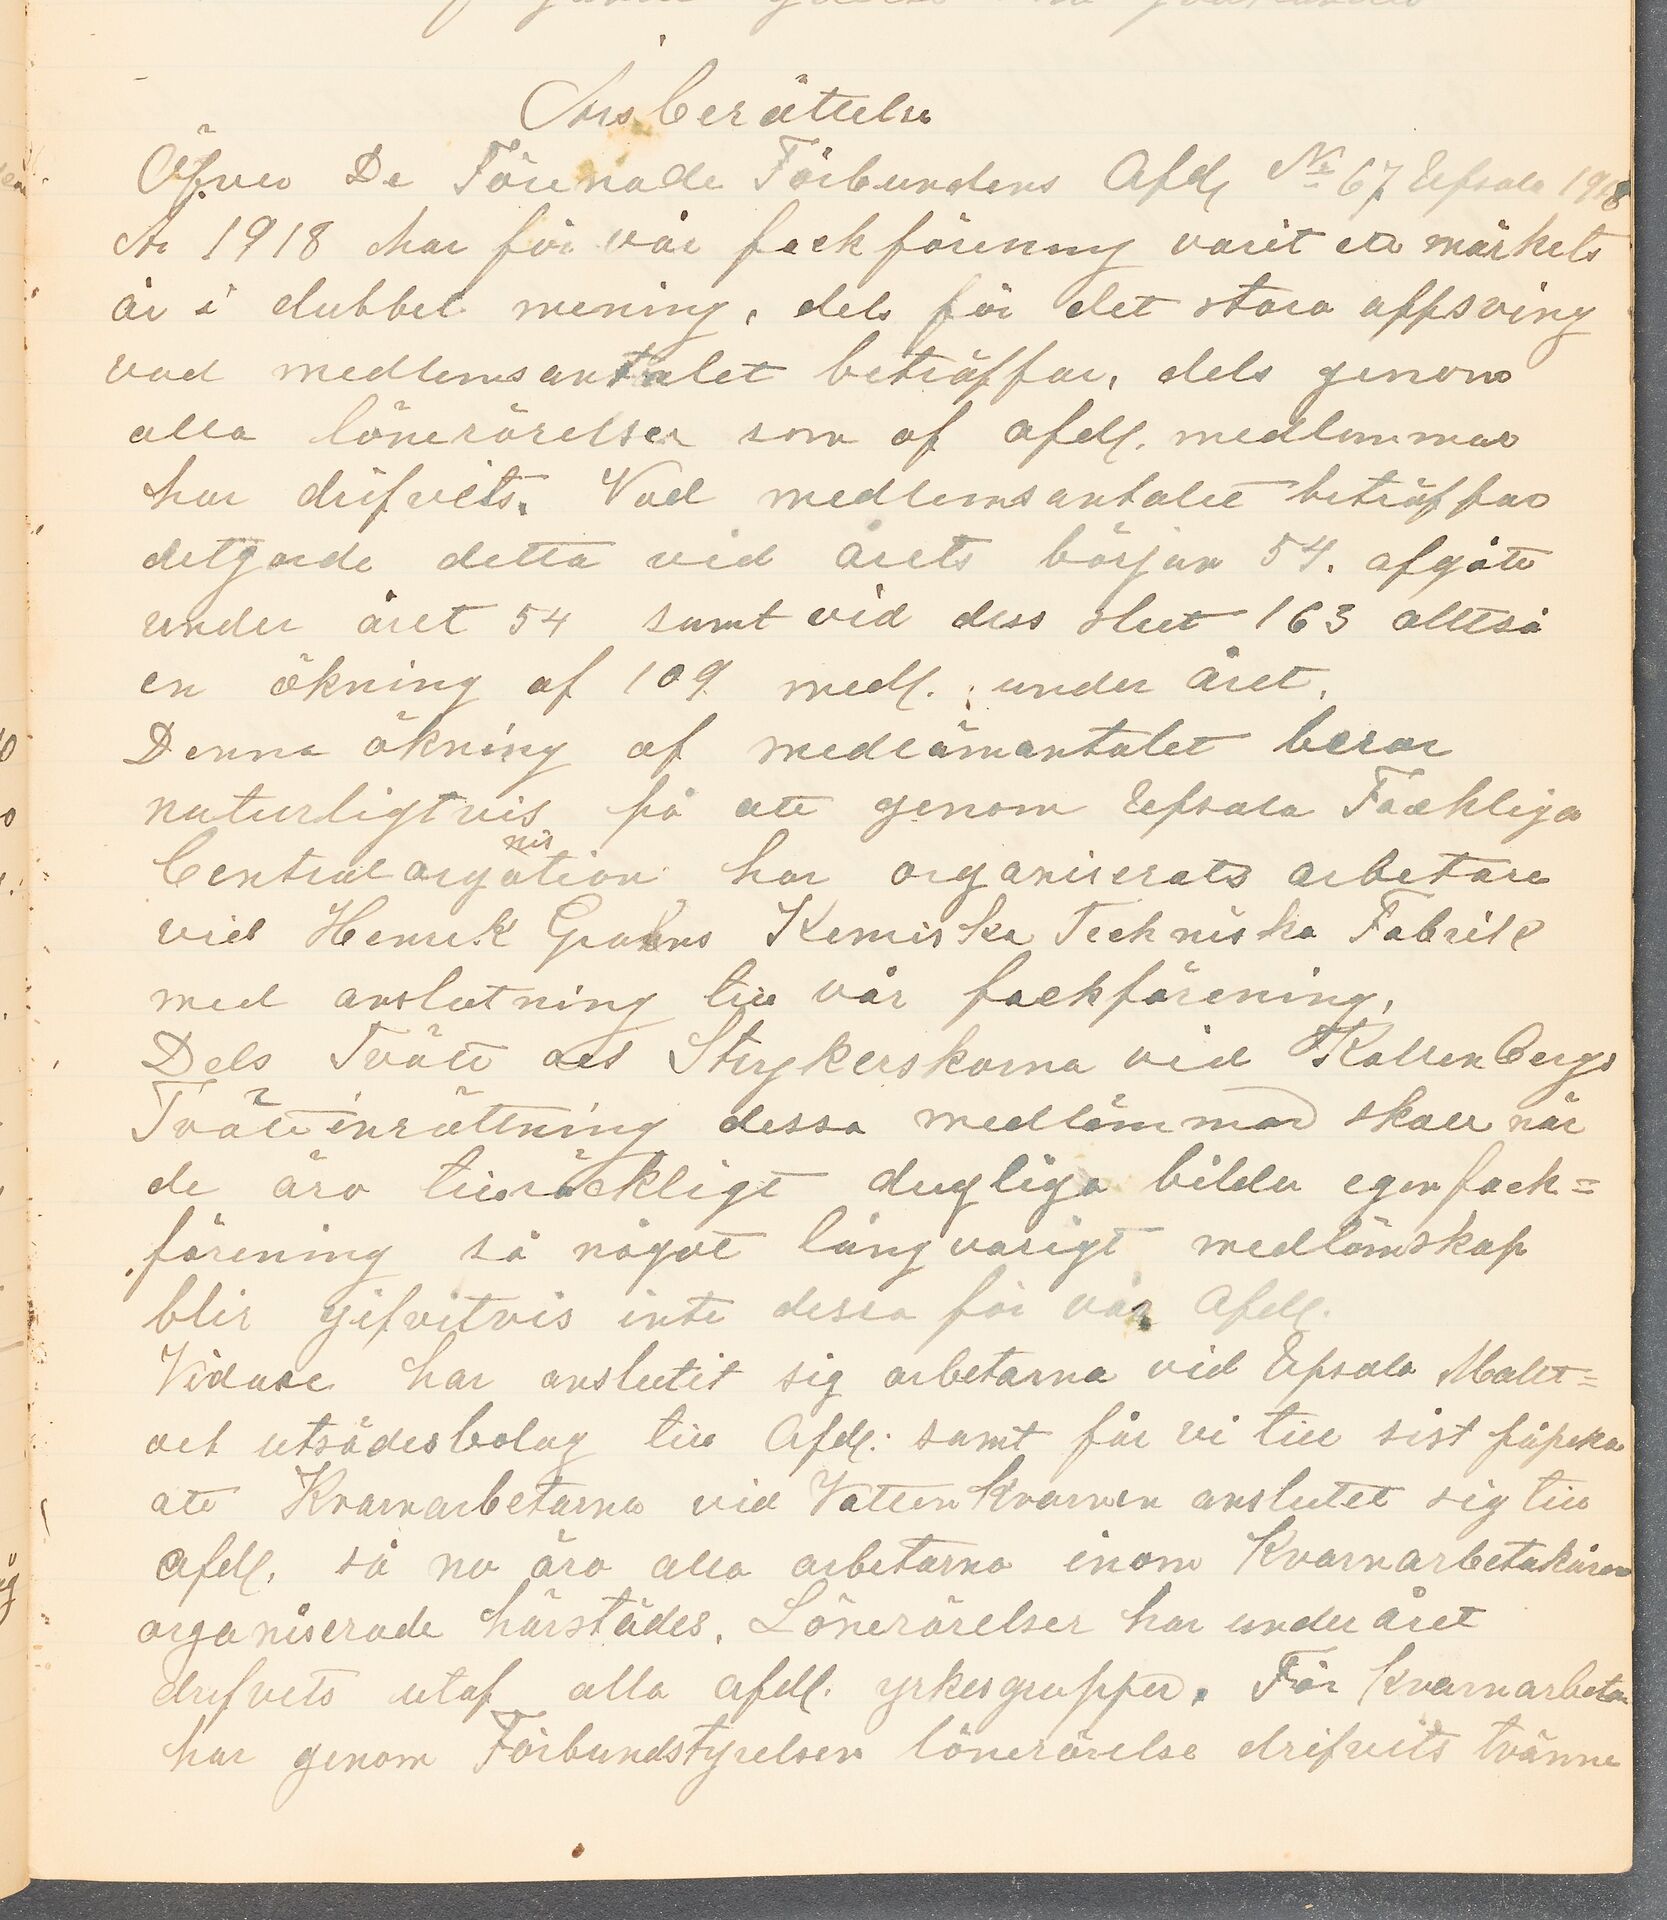 Årsberättelse
Öfver De Förenade Förbundens Afd. No 67 Upsala 1918
År 1918 har för vår fackförening varit ett märkets
år i dubbel mening, dels för det stora uppsving
vad medlemsantalet beträffar, dels genom
alla lönerörelser som af afdl. medlemmar
har drifvits. Vad medlemsantalet beträffar
utgjorde detta vid årets början 54. afgått
under året 54 samt vid dess slut 163 alltså
en ökning af 109 medl. under året.
Denna ökning af medlämantalet beror
naturligtvis på att genom Upsala Fackliga
Centralorganisation har organiserats arbetare
vid Henrik Gahns Kemiska Tekniska Fabrik
med anslutning till vår fackförening,
Dels Tvätt och Strykerskorna vid Kallenbergs
Tvättinrättning dessa medlämmar skall när
de äro tillräckligt dugliga bilda egen fack=
förening så något långvarigt medlämskap
blir gifvitvis inte dessa för vår Afdl.
Vidare har anslutit sig arbetarna vid Upsala Malt=
och utsädesbolag till Afdl. samt får vi till sist påpeka
att Kvarnarbetarna vid Vattenkvarnen anslutet sig till
Afdl. så nu äro alla arbetarna inom Kvarnarbetakåren
organiserade härstädes. Lönerörelser har under året
drifvets utaf alla afdl. yrkesgrupper. För Kvarnarbetar
har genom Förbundstyrelsen lönerörelse drifvits tvänne